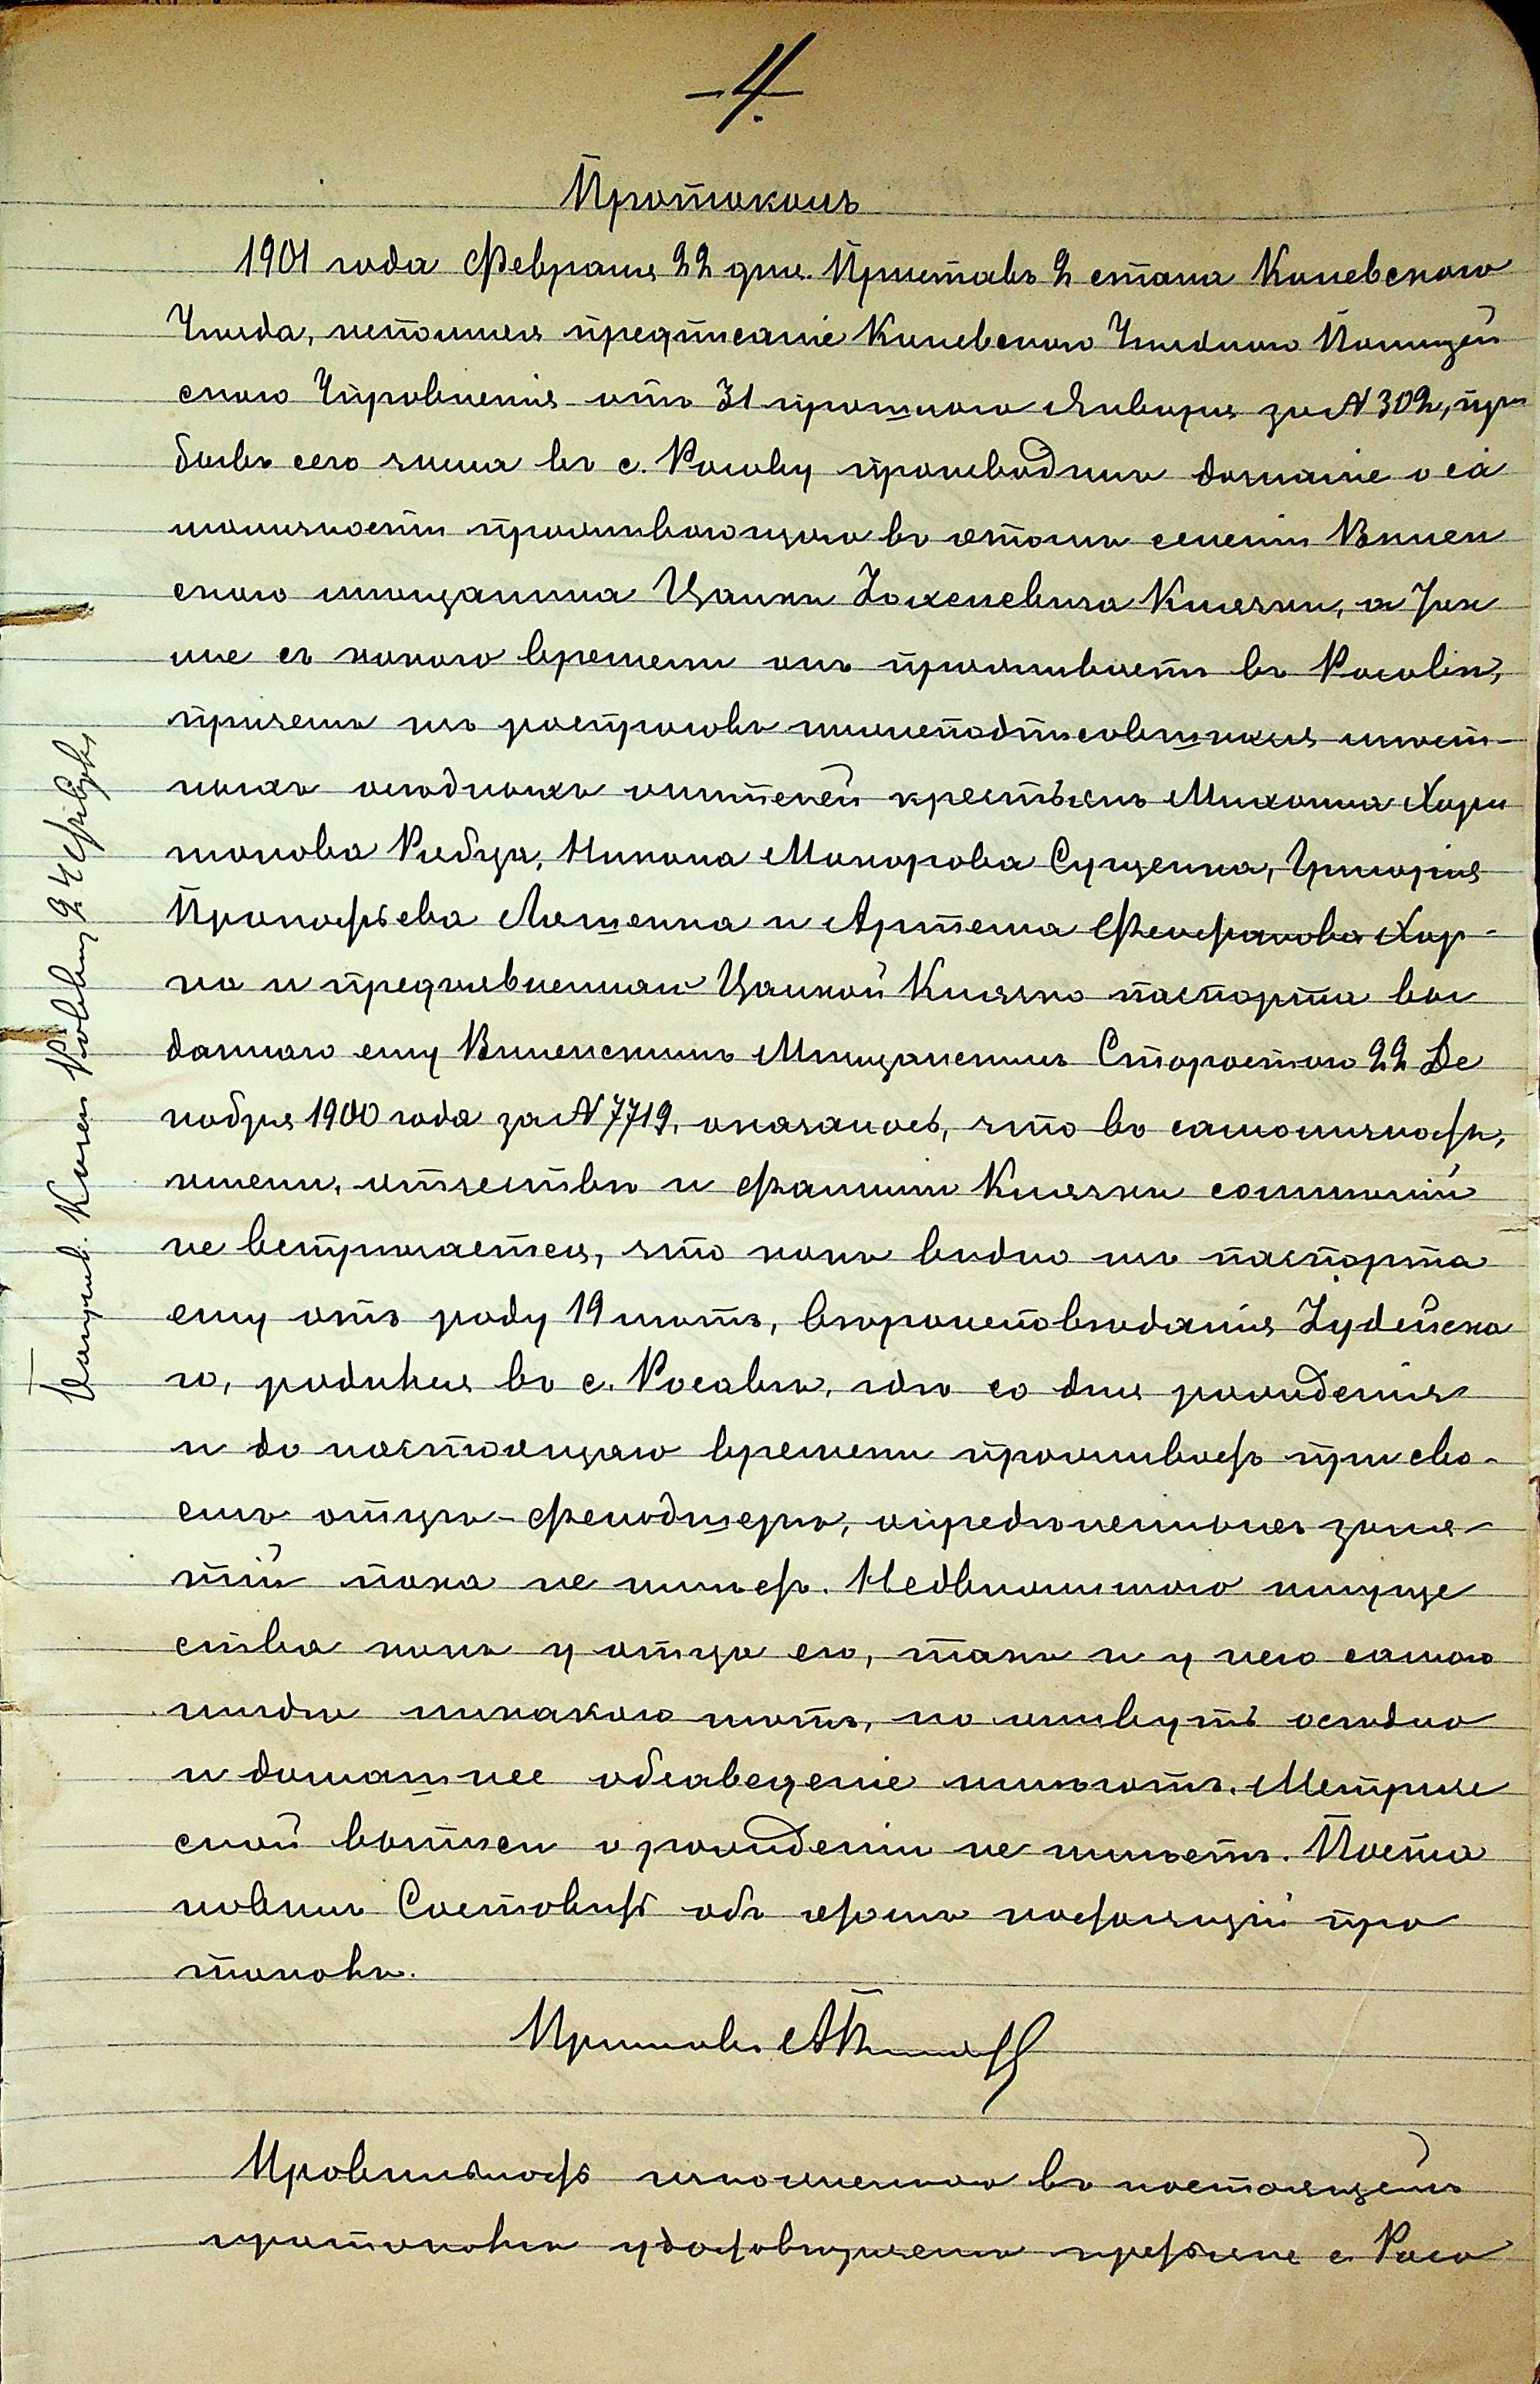 4.
Протоколъ
1901 года Февраля 22 дня. Приставъ 2 стана Каневскаго
Уѣзда, исполняя предписаніе Каневскаго Уѣзднаго Полицей
скаго Управленія отъ 31 прошлаго Января за № 302, при
бывъ сего числа въ с. Росаву производилъ дознаніе о са
моличности проживающаго въ этомъ селеніи
скаго мѣщанина Цалки Іоселевича Клячки, а так
же съ какого времени онъ проживаетъ въ Росавѣ,
причемъ изъ распросовъ нижеподписавшихся мѣст-
ныхъ осѣдлыхъ жителей крестьянъ Михаила Хари
тонова Рябца, Никона Макарова Сущенка, Григорія
Прокофьева Ляшенка и Артема Феофанова Хар-
ка и предъявленнаго Цалкой Клячко паспорта вы
даннаго ему Мѣщанскимъ Старостою 22 Де
кабря 1900 года за № 7719, оказалось, что въ самоличности,
имени, отчествѣ и фамиліи Клячки сомнѣній
не встрѣчается, что какъ видно изъ паспорта
ему отъ роду 19 лѣтъ, вѣроисповѣданія Іудейска
го, родился въ с. Росавѣ, гдѣ со дня рожденія
и до настоящаго времени проживаетъ при сво-
емъ отцѣ-фельдшерѣ, опредѣленныхъ заня-
тій пока не имѣетъ. Недвижимаго имуще
ства какъ у отца его, такъ и у него самаго
нигдѣ никакого нѣтъ, но живутъ осѣдло
и домашнее обзаведеніе имѣютъ. Метриче
ской выписи о рожденіи не имѣетъ. Поста
новилъ Составить объ этомъ настоящій про
токолъ.
Приставъ
Правильность изложеннаго въ настоящемъ
протоколѣ удостовѣряемъ крестьяне с. Роса
24 Февр.